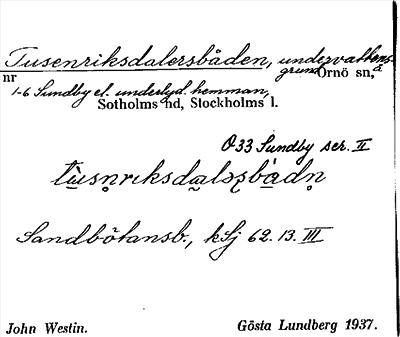 Tusenriksdalersbåden, undervattens-
grund Ornö sn, å
nr 1-6 Sundby el. underlyd. hemman,
Sotholms hd, Stockholms l.
Ö 33 Sundby ser. II
Sandbötansb., kSj 62. 13. III
John Westin. Gösta Lundberg 1937.